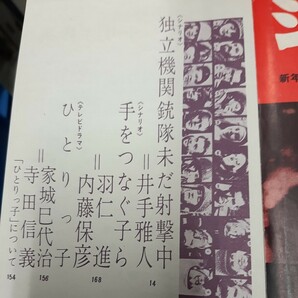 〈シナリオ〉
独立機関銃隊未だ射撃中
=井手雅人
14
〈シナリオ〉
手をつなぐ子ら
=羽仁進
内藤保彦
168
〈テレビドラマ〉
ひとりっ子
=家城巳代治
寺田信義
156
「ひとりっ子」について
154
新年